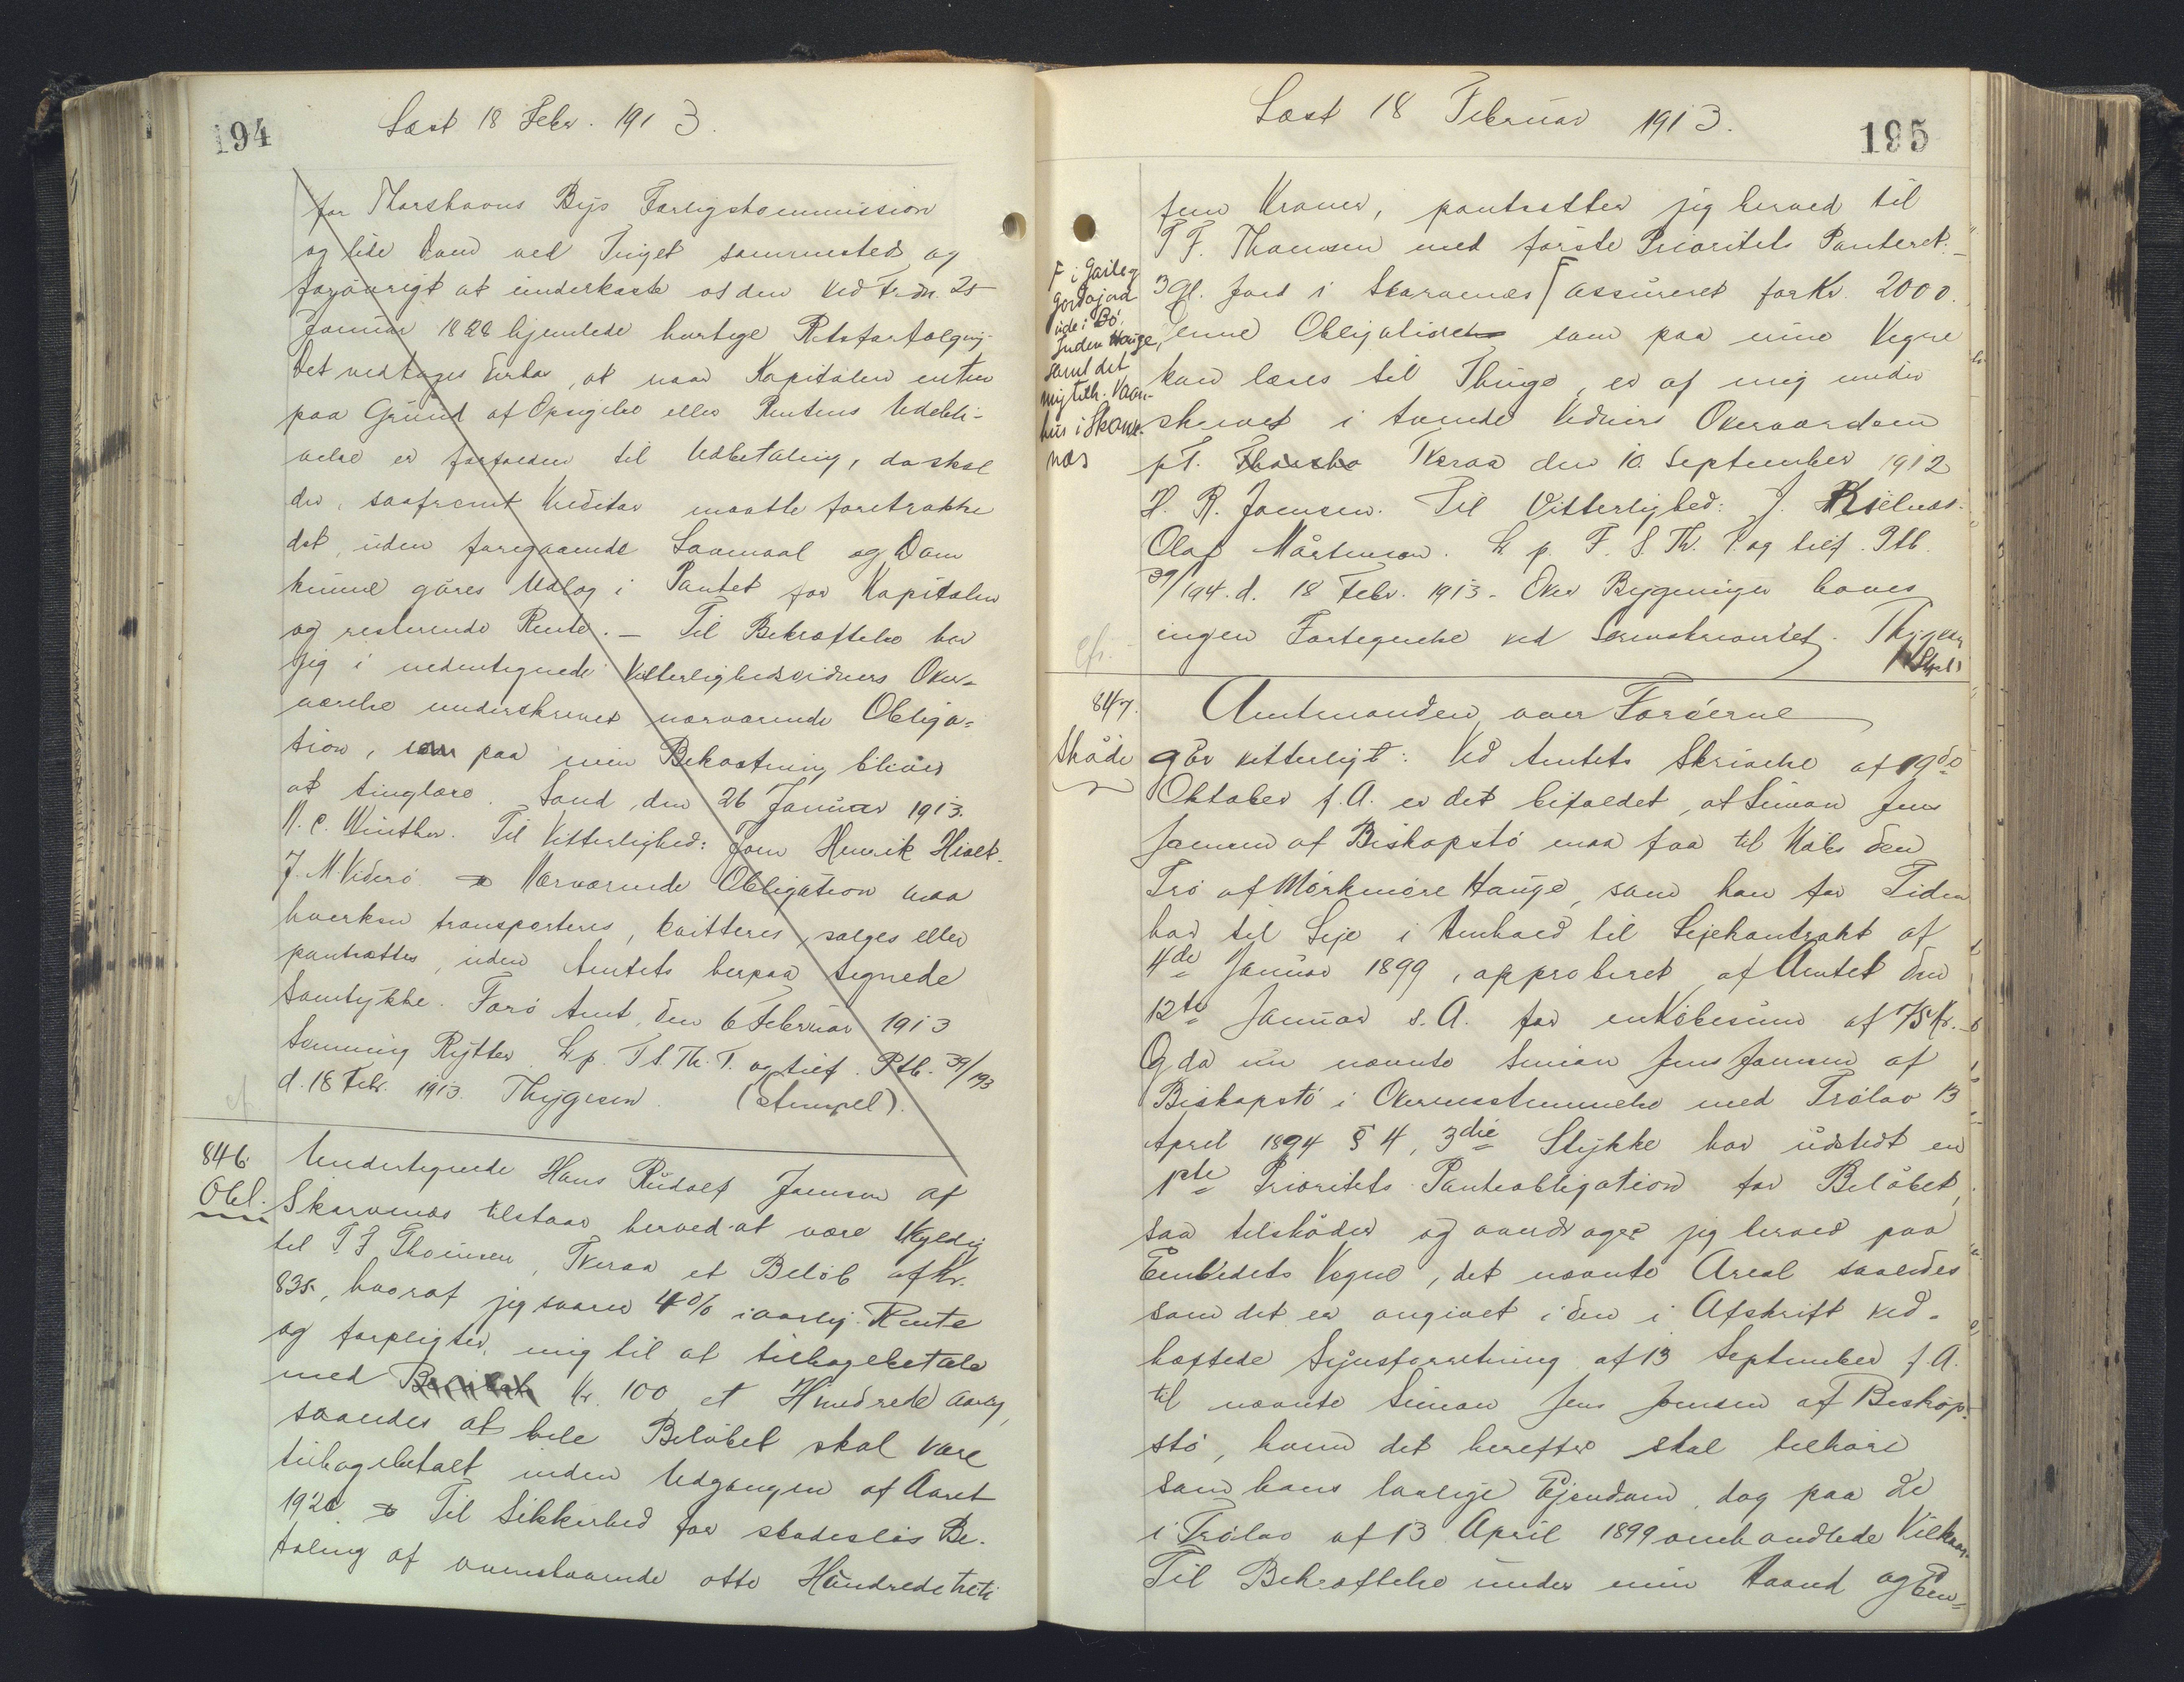 194
Læst 18 Febr. 1913.
for Thorshavns Bys Forligskommission
og lide Dom ved Tinget sammesteds og
forøvrigt at underkaste os den ved Frdn. 25
Januar 1828 hjemlede hurtige Retsforfølgning.
Det vedtages derhos, at naar Kapitalen enten
paa Grund af Opsigelse eller Rentens Udebli-
velse er forfalden til Udbetaling, da skal
der, saafremt Kreditor maatte foretrække
det, uden foregaaende Lovmaal og Dom
kunne gøres Udlæg i Pantet for Kapitalen
og resterende Rente. – Til Bekræftelse har
jeg i undertegnede Vitterlighedsvidners Over-
værelse underskrevet nærværende Obliga-
tion, som paa min Bekostning bliver
at tinglæse. Sand, den 26 Januar 1913.
N. C. Winther. Til Vitterlighed: Joen Henrik
J. M. Viderø. Nærværende Obligation maa
hverken transporteres, kvitteres, sælges eller
pantsættes, uden Amtets herpaa tegnede
Samtykke. Færø Amt, den 6 Februar 1913
Svenning Rytter. L. p. F. S. Th. T. og tilf. Ptb. 39/193
d. 18 Febr. 1913. Thygesen. (Stempel).
cf
846
Obl.
Undertegnede Hans Rudolf Joensen af
Skarvenæs tilstaar herved at være skyldig
til T F Thomsen, Kveraa et Beløb af Kr.
835, hvoraf jeg svarer 4 % i aarlig Rente
og forpligter mig til at tilbagebetale
med Kr. 100 et Hundrede aarlig,
saaledes at hele Beløbet skal være
tilbagebetalt inden Udgangen af Aaret
1920. Til Sikkerhed for skadesløs Be-
taling af ovenstaaende otte Hundrede treti
195
Læst 18 Februar 1913.
fem Kroner, pantsætter jeg herved til
T F. Thomsen med første Prioritets Panteret. –
3 Gl. Jord i Skarvenæs Γ assureret for Kr. 2000.
Γ i
Gordajord
ude i Bø
Inden Hauge,
samt det
mig tilh. Vaan-
hus i Skarve-
næs
Denne Obligation som paa mine Vegne
kan læses til Thinge, er af mig under
skrevet i tvende Vidners Overværdom
pT. Thorsha Kveraa den 10. September 1912
H. R. Joensen. Til Vitterlighed: J. Kjelnæs.
Olaf Mårtensen. L p. F. S. Th. T. og tilf. Ptb.
39/194. d. 18 Febr. 1913. – Over Bygninger haves
ingen Fortegnelse ved Sorenskriveriet. Thygesen
cfr.
847.
Skøde
Amtmanden over Færøerne
gør vitterligt: Ved Amtets Skrivelse af 19de
Oktober f. A. er det bifaldet, at Simon Jens
Joensen af Biskopstø maa faa til Købs den
Trø af Mørkmøre Hauge, som han for Tiden
har til Leje i Henhold til Lejekontrakt af
4de Januar 1899, approberet af Amtet den
12te Januar s. A. for en Købesum af 75 Kr. –
Og da nu nævnte Simon Jens Joensen af
Biskopstø i Overensstemmelse med Trølov 13
April 1894 § 4, 3die Stykke har udstedt en
1ste Prioritets Panteobligation for Beløbet,
saa tilskøder og overdrager jeg herved paa
Embedets Vegne, det nævnte Areal saaledes
som det er angivet i den i Afskrift ved-
hæftede Synsforretning af 13 September f. A.
til nævnte Simon Jens Joensen af Biskop-
stø, hvem det herefter skal tilhøre
som hans lovlige Ejendom, dog paa de
i Trølov af 13 April 1899 omhandlede Vilkaar.
Til Bekræftelse under min Haand og Em-